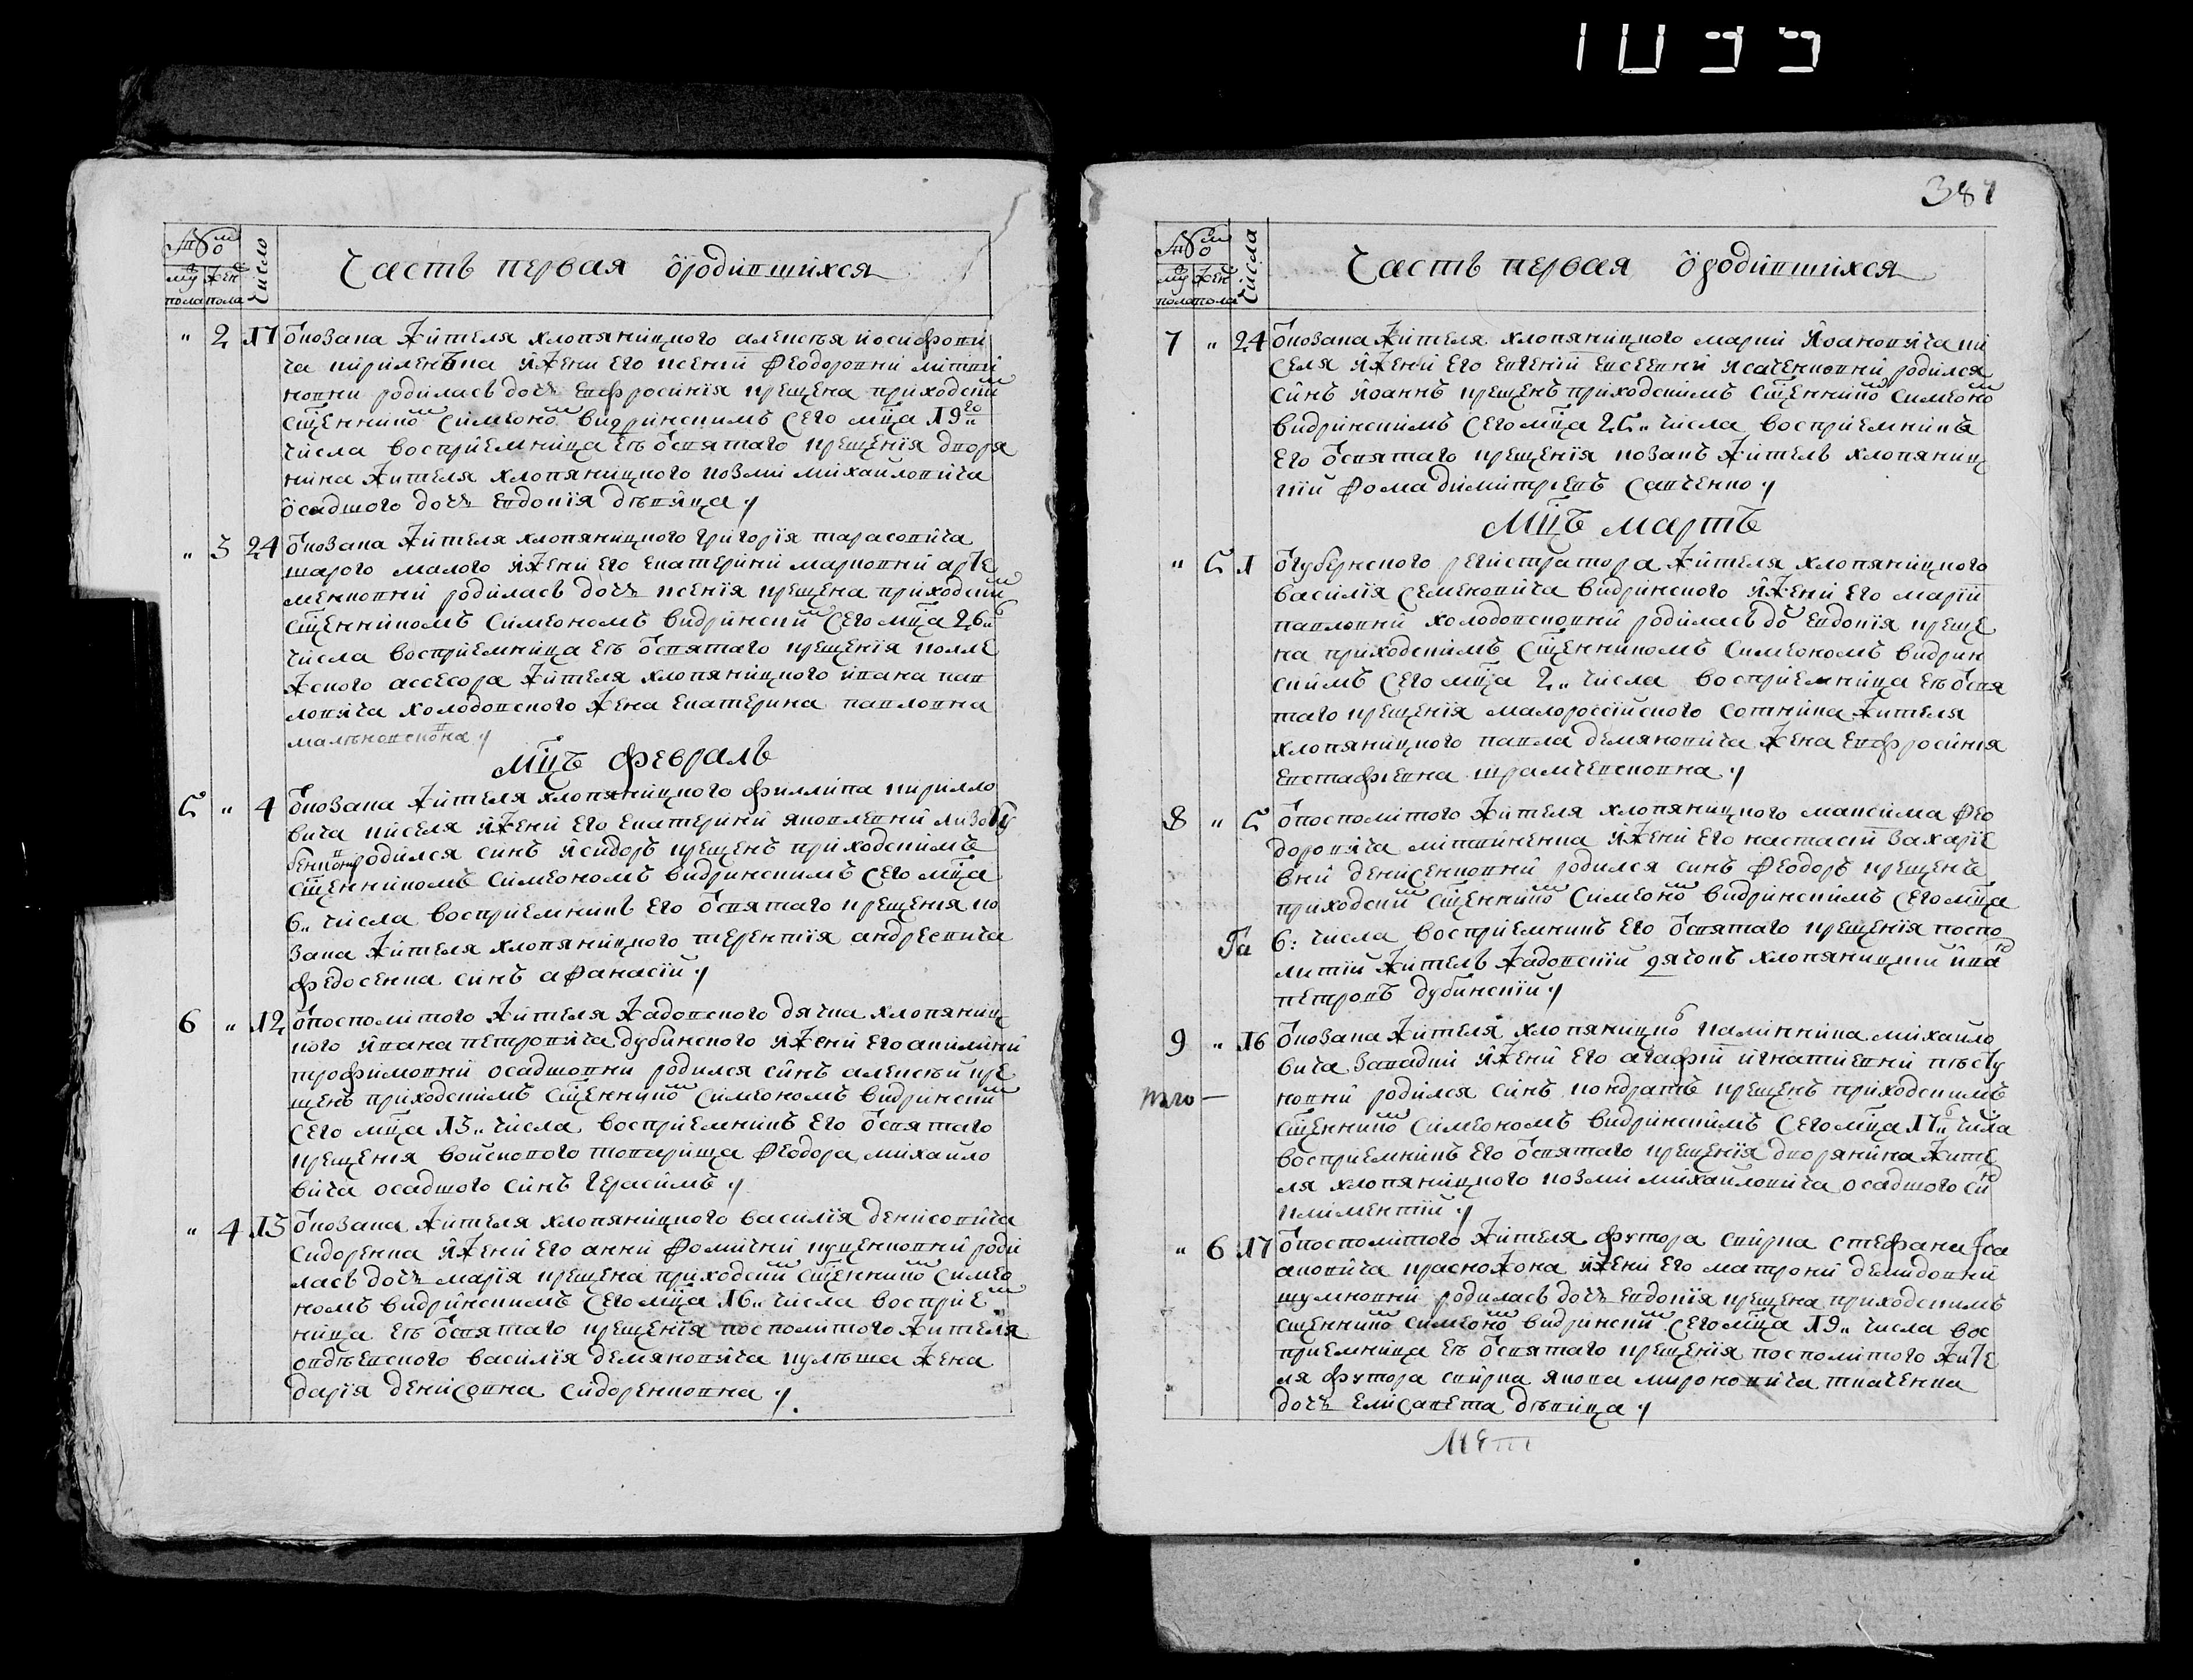 387
Число
Часть первая ѡ родившихся
муж жен
пола пола
" 2 17 ѿ козака жителя хлопяницкого алексѣя иосифови
ча кириленка и жени его ксении Ѳеодоровни литви
новни родилась дочь евфросиния крещена приходским
сщенником симеоном видринским сего мца 19го
числа восприемница еѣ ѿ святаго крещения дворя
нина жителя хлопяницкого козми михайловича
осадшого дочь евдокия дѣвица
" 3 24 ѿ козака жителя хлопяницкого григория тарасовича
шарого малого и жени его екатерини марковни арте
менковни родилась дочь ксения крещена приходским
сщенникомъ симеономъ видринским сего мца 26
числа восприемница еѣ ѿ святаго крещения колле
жского ассесора жителя хлопяницкого ивана пав
ловича холодовского жена екатерина павловна
мцъ февраль
5 " 4 ѿ козака жителя хлопяницкого филлипа кирилло
вича киселя и жени его екатерини яковлевни лизогу
бенковни родился синъ исидоръ крещенъ приходскимъ
сщенникомъ симеономъ видринскимъ сего мца
6 числа восприемникъ его ѿ святаго крещения ко
зака жителя хлопяницкого терентия андреевича
федосенка синъ аѲанасий
6 " 12 ѿ посполитого жителя жадовского дячка хлопяниц
кого ивана петровича дубинского и жени его акилини
трофимовни осадшовни родился синъ алексѣй кре
щенъ приходскимъ сщенником симеономъ видринским
сего мца 13 числа восприемникъ его ѿ святаго
крещения войскового товарища Ѳеодора михайло
вича осадшого синъ герасимъ
" 4 13 ѿ козака жителя хлопяницкого василия денисовича
сидоренка и жени его анни Ѳомични куценковни роди
лась дочь мария крещена приходским сщенником симео
номъ видринскимъ сего мца 16 числа восприем
ница еѣ ѿ святаго крещения посполитого жителя
овдѣевского василия демяновича кулѣша жена
дария денисовна сидоренковна
Числа
Часть первая ѡ родившихся
муж жен
пола пола
7 " 24 ѿ козака жителя хлопяницкого марка иоановича ки
селя и жени его евгении евсеевни исаченковни родился
синъ иоаннъ крещенъ приходскимъ сщенником симеоном
видринскимъ сего мца 25 числа восприемникъ
его ѿ святаго крещения козакъ житель хлопяниц
кий Ѳома димитриевъ савченко
мцъ мартъ
" 5 1 ѿ губернского регистратора жителя хлопяницкого
василия семеновича видринского и жени его марии
павловни холодовсковни родилась доч евдокия креще
на приходскимъ сщенникомъ симеономъ видрин
скимъ сего мца 2 числа восприемница еѣ ѿ свя
таго крещения малороссийского сотника жителя
хлопяницкого павла демяновича жена евфросиния
евстафиевна шрамченсковна
8 " 5 ѿ посполитого жителя хлопяницкого максима Ѳео
доровича литвиненка и жени его настасии захарие
вни денисенковни родился синъ Ѳеодоръ крещенъ
приходским сщенником симеоном видринскимъ сего мца
6 числа восприемникъ его ѿ святаго крещения поспо
литий житель жадовский дячокъ хлопяницкий иван
петровъ дубинский
9 " 16 ѿ козака жителя хлопяницко калинника михайло
вича западни и жени его агафии игнатиевни пѣсту
новни родился синъ кондратъ крещенъ приходскимъ
сщенником симеономъ видринскимъ сего мца 17 числа
восприемникъ его ѿ святаго крещения дворянина жите
ля хлопяницкого козми михайловича осадшого син
климентий
" 6 17 ѿ посполитого жителя футора свирка стефана иса
аковича красножона и жени его матрони демидовни
шумковни родилась дочь евдокия крещена приходскимъ
сщенником симеоном видринским сего мца 19 числа вос
приемница еѣ ѿ святаго крещения посполитого жите
ля футора свирка якова мироновича ткаченка
дочь елисавета дѣвица